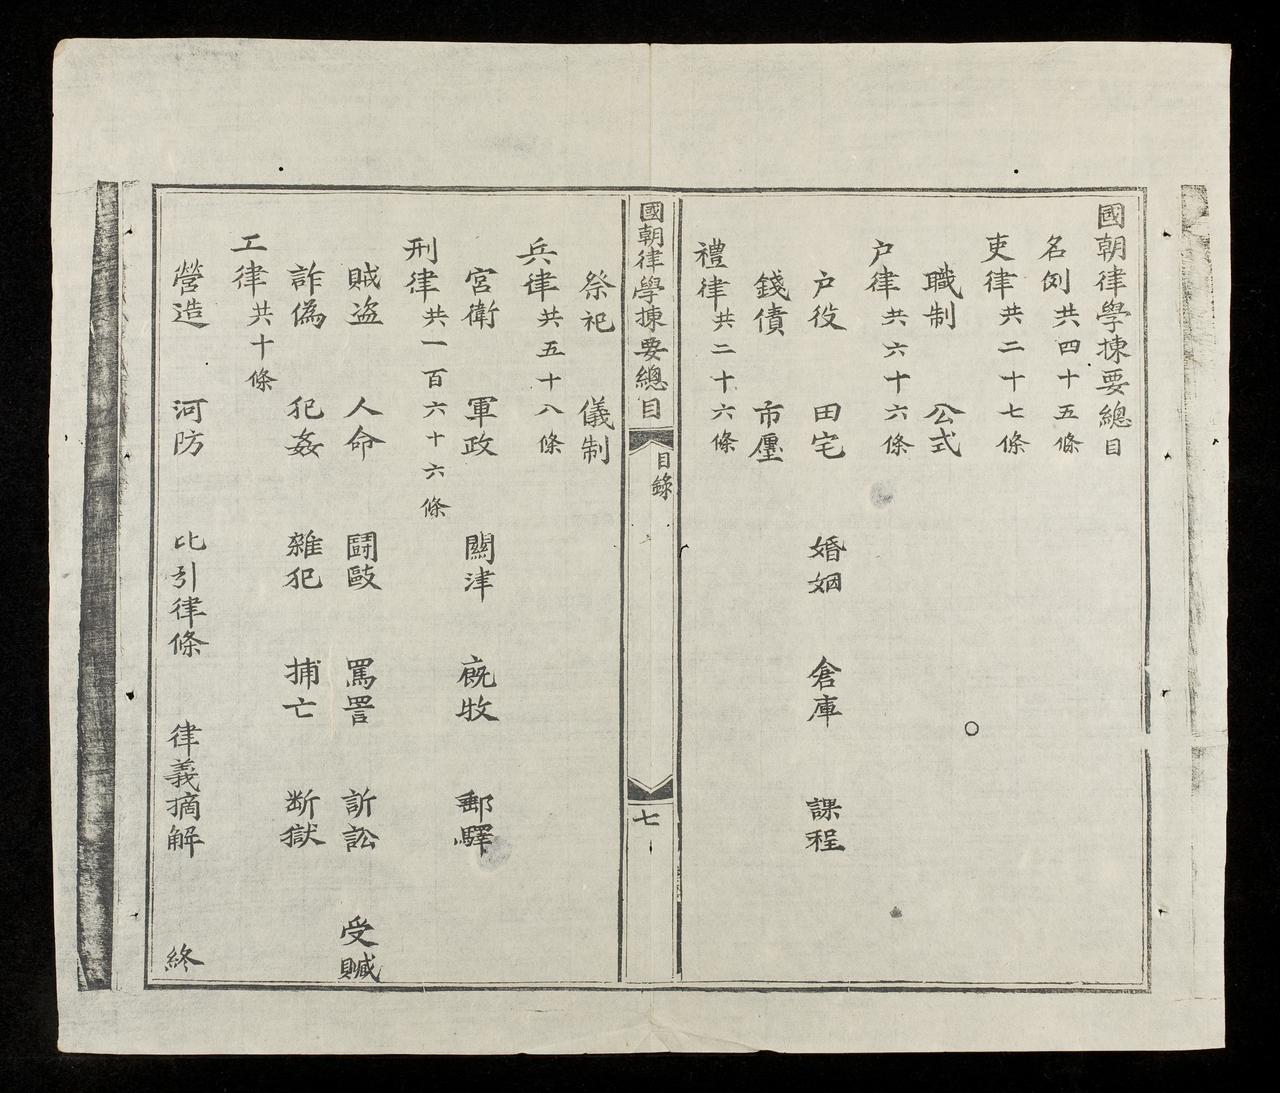 國朝律學揀要總目
名例共四十五條
吏律共二十七條
職制 公式
户律共六十六條
户役 田宅 婚姻 倉庫 課程
錢債 市廛
禮律共二十六條
國朝律學揀要總目
目錄
七
祭祀 儀制
兵律共五十八條
宮衛 軍政 關津 廐牧 郵驛
刑律共一百六十六條
賊盗 人命 鬪毆 罵詈 訴訟 受贓
詐偽 犯姦 雜犯 捕亡 断獄
工律共十條
營造 河防 比引律條 律義摘解 終